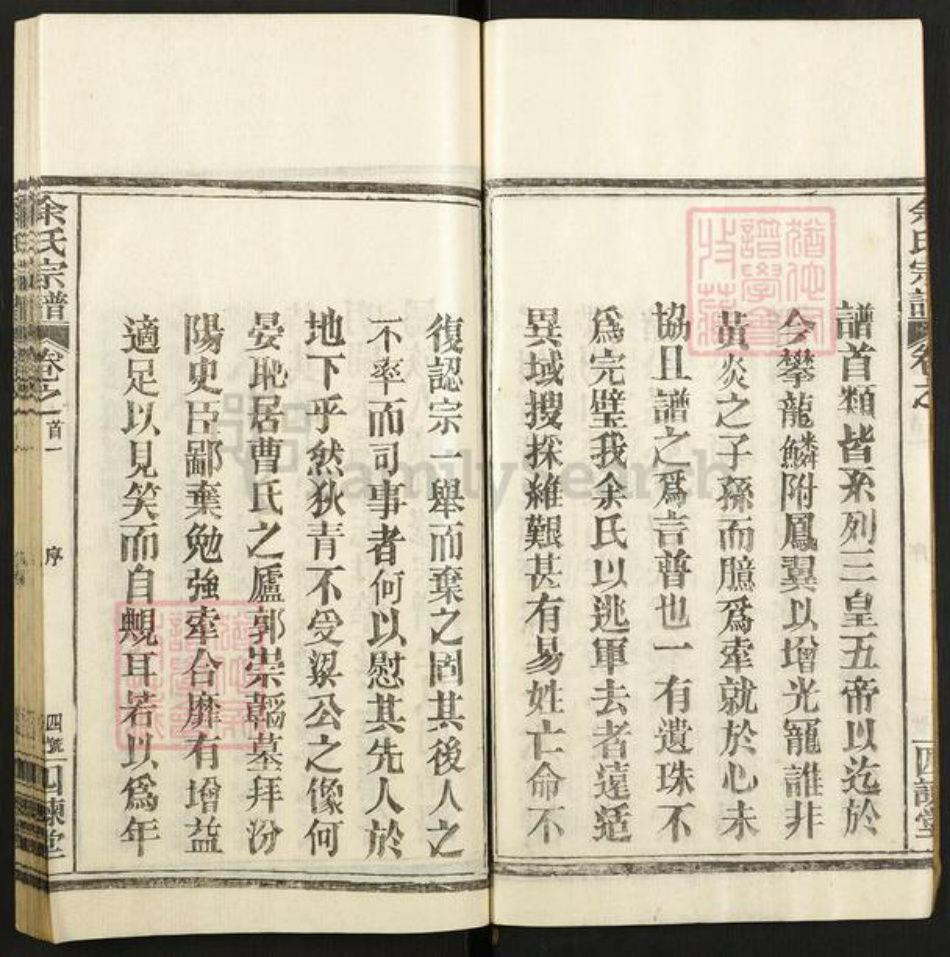 余氏宗譜 卷之
四諫堂
譜首類皆系列三皇五帝以迄於
今攀龍鱗附鳳翼以增光寵誰非
黃炎之子孫而臆爲牽就於心未
協且譜之爲言普也一有遺珠不
爲完璧我余氏以逃軍去者遠适
異域搜探維艱甚有易姓亡命不
復認宗一舉而棄之固其後人之
不率而司事者何以慰其先人於
地下乎然狄青不受梁公之像何
晏恥居曹氏之廬郭崇韜墓拜汾
陽史臣鄙棄勉強牽合靡有增益
適足以見笑而自覥耳若以爲年
余氏宗譜 卷之首一 序 四號 四諫堂
FamilySearch